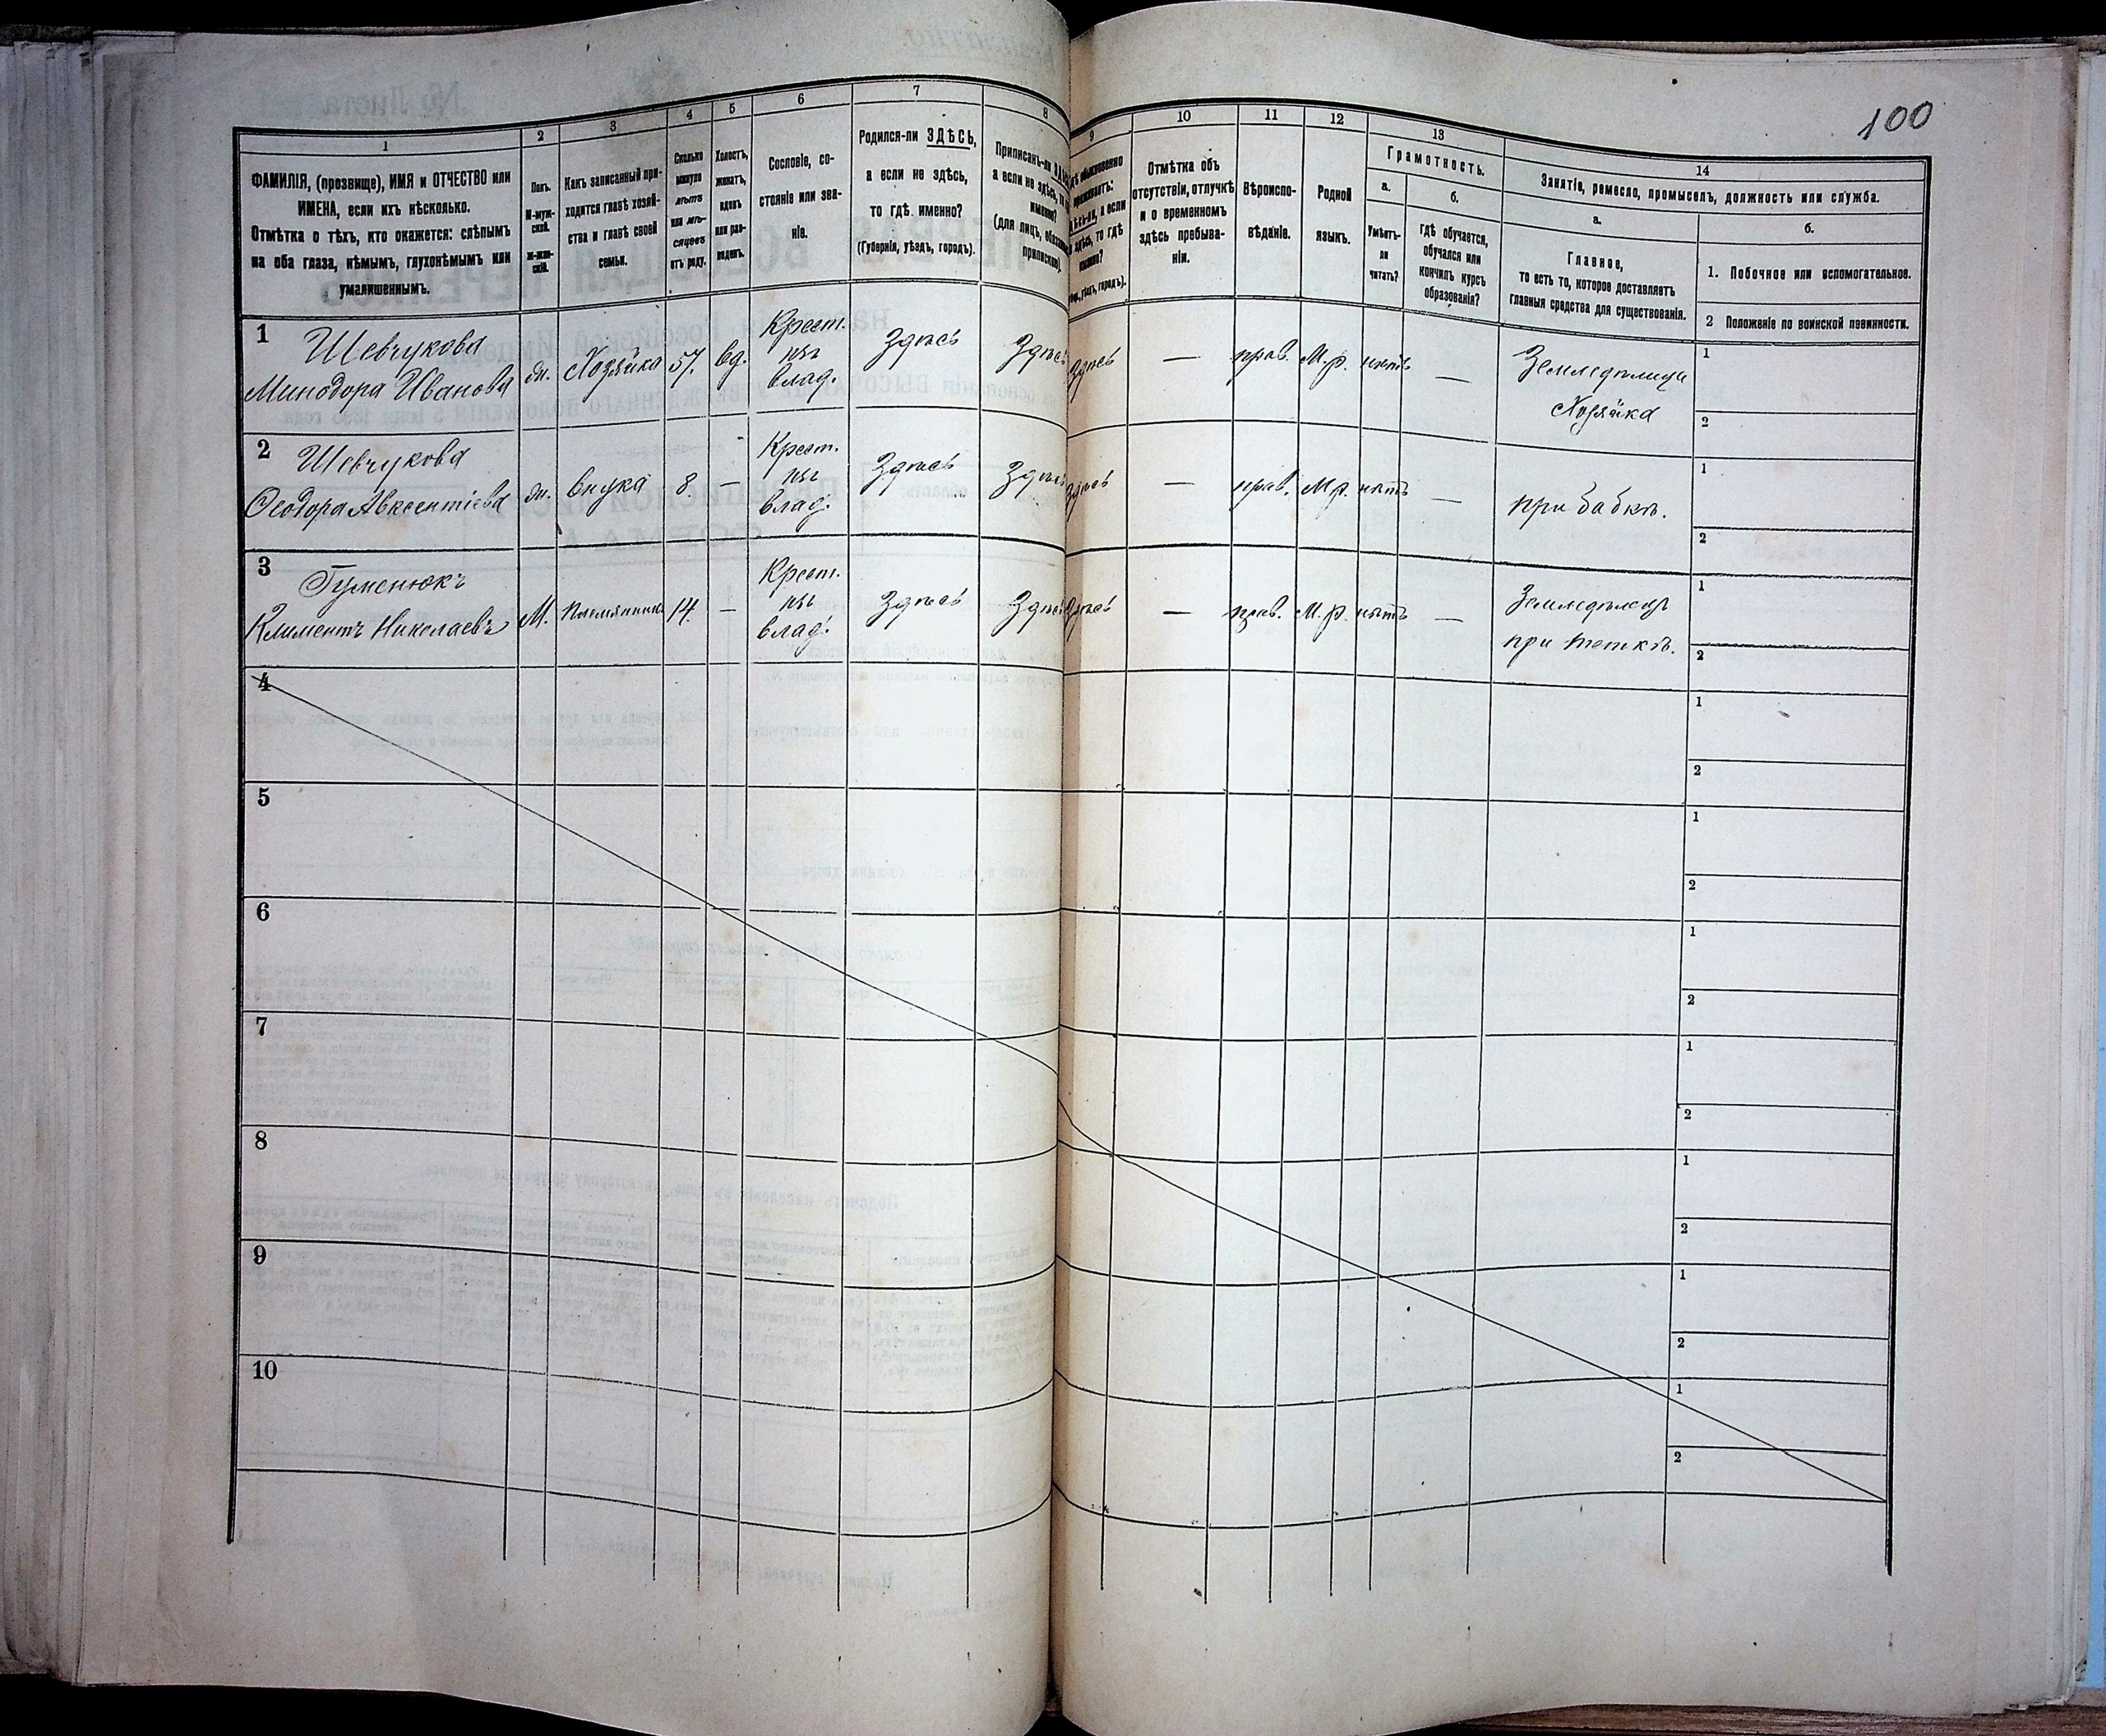 100
1
2
3
4
5
6
7
8
9
10
11
12
13
14
ФАМИЛІЯ, (прозвище), ИМЯ и ОТЧЕСТВО или
ИМЕНА, если ихъ нѣсколько.
Отмѣтка о тѣхъ, кто окажется: слѣпымъ
на оба глаза, нѣмымъ, глухонѣмымъ или
умалишеннымъ.
Полъ.
М-муж-
ской.
Ж-жен-
скій.
Какъ записанный при-
ходится главѣ хозяй-
ства и главѣ своей
семьи.
Сколько
минуло
лѣтъ
или мѣ-
сяцевъ
отъ роду.
Холостъ,
женатъ,
вдовъ
или раз-
веденъ.
Сословіе, со-
стояніе или зва-
ніе.
Родился-ли ЗДѢСЬ,
а если не здѣсь,
то гдѣ именно?
(Губернія, уѣздъ, городъ).
Приписанъ-ли
а если не здѣсь,
(для лицъ,
Отмѣтка объ
отсутствіи, отлучкѣ
и о временномъ
здѣсь пребыва-
ніи.
Вѣроиспо-
вѣданіе.
Родной
языкъ.
Грамотность.
а.
Умѣетъ-
ли
читать?
б.
гдѣ обучается,
обучался или
кончилъ курсъ
образованія?
Занятіе, ремесло, промыселъ, должность или служба.
а.
Главное,
то есть то, которое доставляетъ
главныя средства для существованія.
б.
1. Побочное или вспомогательное.
2 Положеніе по воинской повинности.
1 Шевчукова
Минодора Иванова
ж. Хозяйка 57. вд.
Крест.
изъ
влад.
Здѣсь Здѣсь Здѣсь — прав. М.р. нѣтъ —
Земледѣлица
Хозяйка
1
2
2 Шевчукова
Ѳеодора Авксентіева
ж. внука 8 —
Крест.
изъ
влад.
Здѣсь Здѣсь Здѣсь — прав. М.р. нѣтъ —
при бабкѣ.
1
2
3 Гуменюкъ
Климентъ Николаевъ
М. племянникъ 14. —
Крест.
изъ
влад.
Здѣсь Здѣсь Здѣсь — прав. М.р. нѣтъ —
Земледѣлецъ
при теткѣ.
1
2
4
1
2
5
1
2
6
1
2
7
1
2
8
1
2
9
1
2
10
1
2